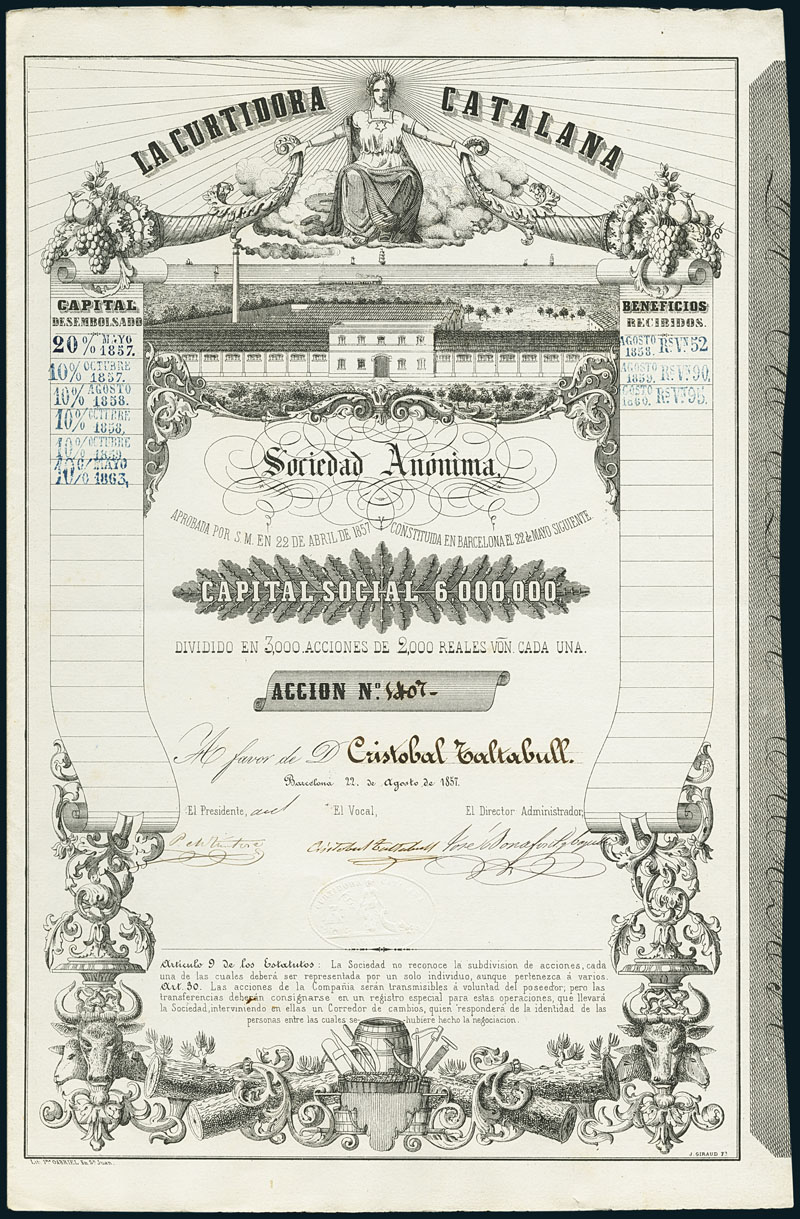 LA CURTIDORA CATALANA
CAPITAL
DESEMBOLSADO
20% MAYO 1857.
10% OCTUBRE 1857.
10% AGOSTO 1858.
10% OCTUBRE 1858.
10% OCTUBRE
MAYO 1863,
BENEFICIOS
RECIBIDOS.
AGOSTO 1858. Rs. Vn. 52
AGOSTO 1859. Rs. Vn. 90.
1860. Rs. Vn. 95.
Sociedad Anónima,
APROBADA POR S.M. EN 22 DE ABRIL DE 1857 Y CONSTITUIDA EN BARCELONA EL 22 de MAYO SIGUIENTE.
CAPITAL SOCIAL 6.000,000,
DIVIDIDO EN 3,000 ACCIONES DE 2,000 REALES VÓN. CADA UNA.
ACCION Nº. 1407-
A favor de D Cristobal Taltabull.
Barcelona 22. de Agosto de 1857.
El Presidente, El Vocal, El Director Administrador,
Cristobal Taltabull José Bonafont
Articulo 9 de los Estatutos: La Sociedad no reconoce la subdivision de acciones, cada
una de las cuales deberá ser representada por un solo individuo, aunque pertenezca á varios.
Art. 30. Las acciones de la Compañia serán transmisibles á voluntad del poseedor; pero las
transferencias deberán consignarse en un registro especial para estas operaciones, que llevará
la Sociedad, interviniendo en ellas un Corredor de cambios, quien responderá de la identidad de las
personas entre las cuales se hubiere hecho la negociacion.
Lit. GABRIEL, En Sn. Juan.
J. GIRAUD Ft.